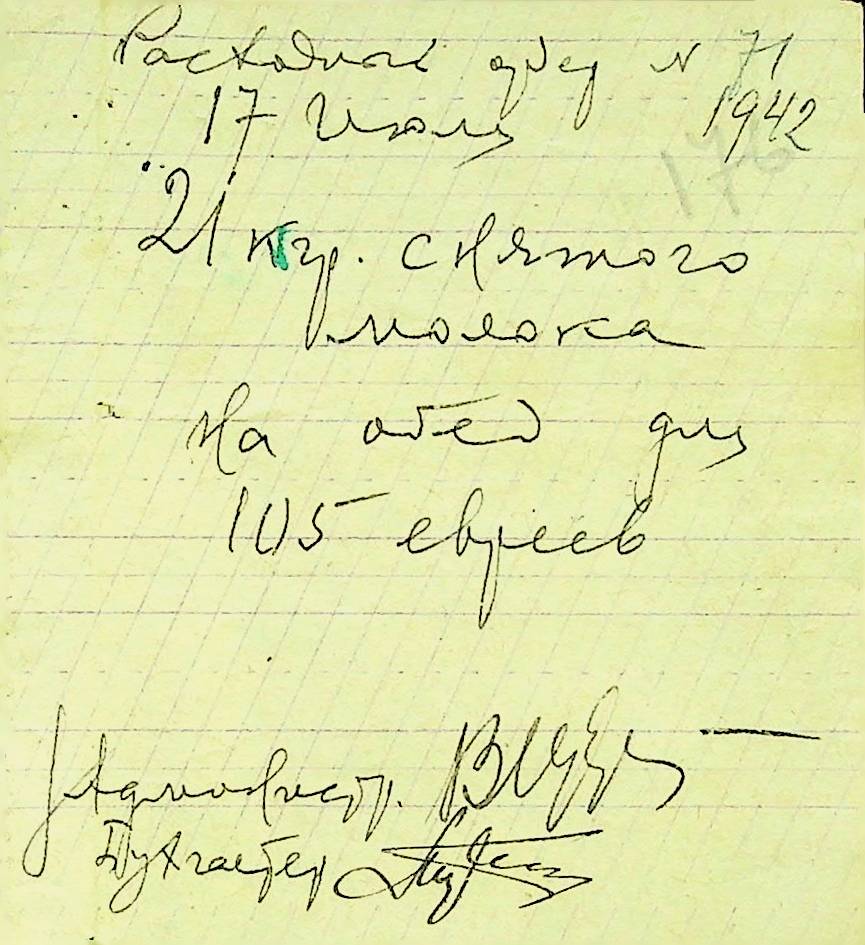 Расходный ордер N 71
17 Июля 1942
176
21 кгр. снятого
молока
на обед для
105 евреев
Администр.
Бухгалтер